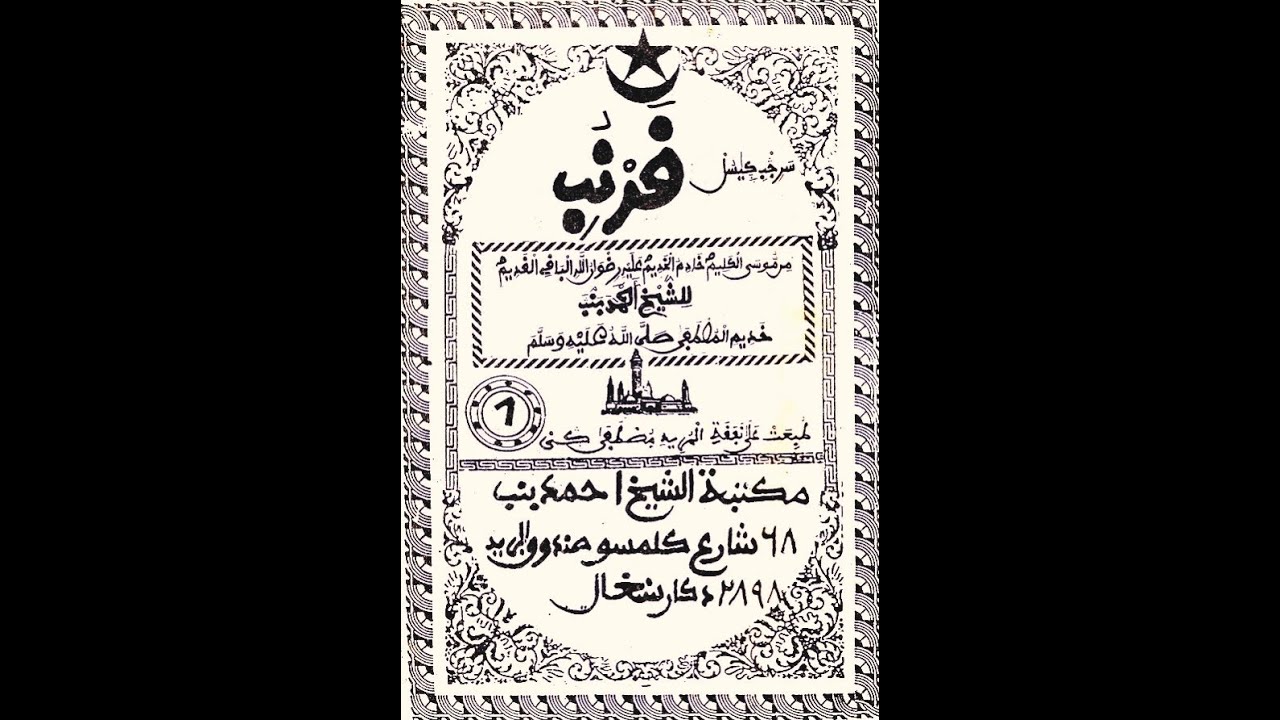 فَرْنَب
مِن مُّوسَى الْكَلِيمْ خَادِمَ الْقَدِيمْ عَلَيْهِ رِضْوَانُ اللَّهِ الْبَاقِي الْقَدِيمْ
لِلشَّيْخِ أَحْمَدَ بَمْبَ
خَدِيمِ الْمُصْطَفَى صَلَّى اللَّهُ عَلَيْهِ وَسَلَّمَ
1
طُبِعَتْ عَلَى نَفَقَةِ الْمُرِيدِ مُصْطَفَى
مكتبة الشيخ احمد بنب
٦٨ شارع كلمسو صندوق البريد
٢٨٩٨ دكار سنغال